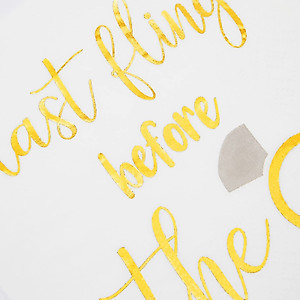 last fling
before
the